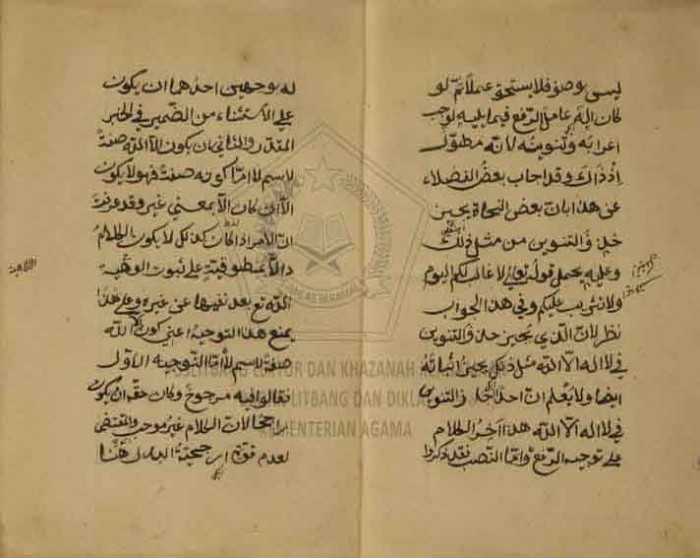 ليس بوصف فلا يستحق عملا ثم لو
كان اله عامل الرفع فيما يليه لوجب
اعرابه وتنوينه لانه مطول
اذ ذاك وقد اجاب بعض الفضلاء
عن هذا بان بعض النحاة يجيز
حذف التنوين من مثل ذلك
وعليه يحمل قوله تعالى لا غالب لكم اليوم
ولا تثريب عليكم وفي هذا الجواب
نظر لان الذي يجيز حذف التنوين
في لا اله الا الله مثل ذلك يجيز اثباته
ايضا ولا يعلم ان احدا حذف التنوين
في لا اله الا الله هذا آخر الكلام
على توجيه الرفع واما النصب فقد ذكروا
له توجهين احدهما ان يكون
على الاستثناء من الضمير في الخبر
المقدر والثاني ان يكون الا الله صفة
لاسم لا اما كونه صفة فهو لا يكون
الا ان كان الا بمعنى غير وقد عرفت
ان الامر اذا كان كذلك لا يكون الكلام
دالا بمنطوقه على ثبوت الوهية
الله تع بعد نفيها عن غيره وعلى هذا
يمنع هذا التوجيه اعني كون الا الله
صفة لاسم لا واما التوجيه الاول
فقالوا فيه مرجوح وكان حقه ان يكون
راجحا لان الكلام غير موجب والمقتضى
لعدم ارجحية البدل هنا
LITBANG LEKTUR DAN KHAZANAH
LITBANG DAN DIKLAT
KEMENTERIAN AGAMA